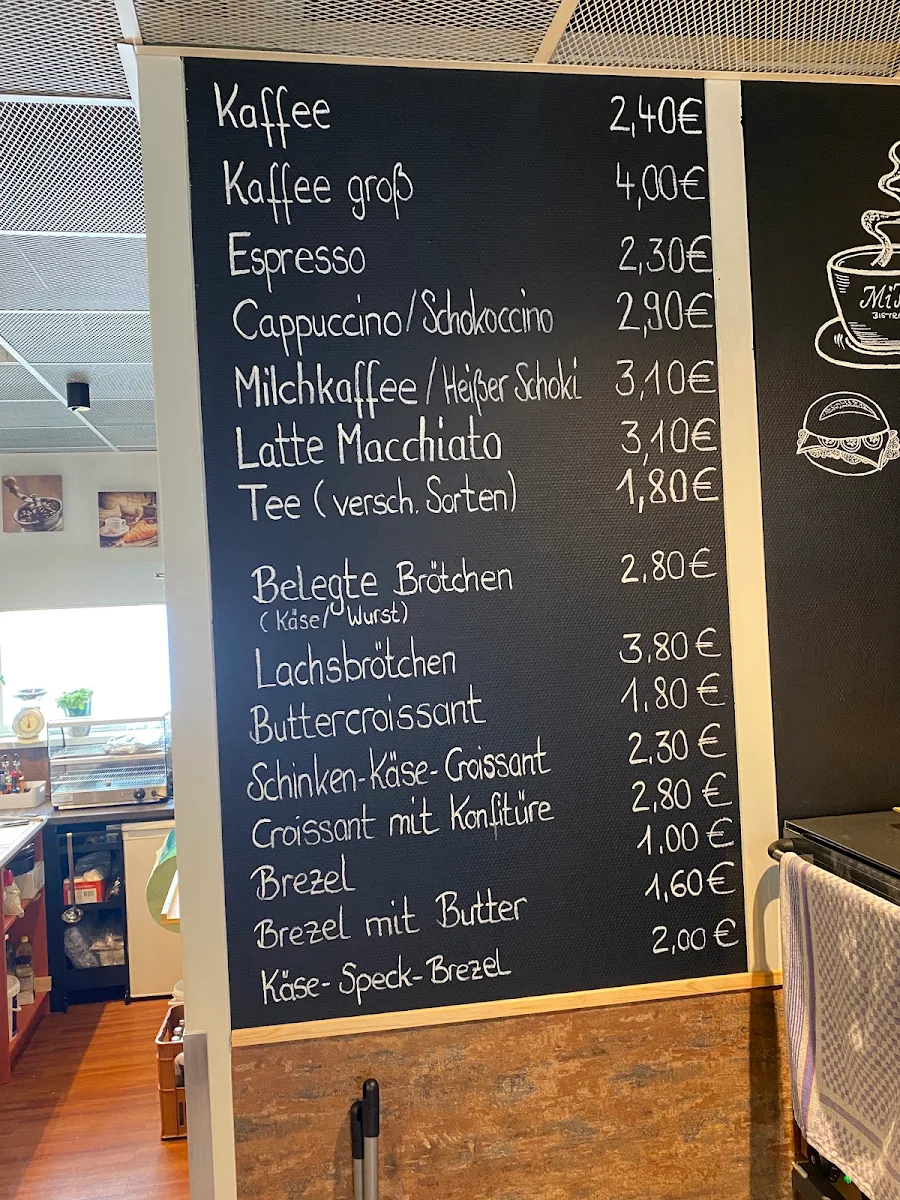 Kaffee 2,40€
Kaffee groß 4,00€
Espresso 2,30€
Cappuccino/Schokoccino 2,90€
Milchkaffee/Heißer Schoki 3,10€
Latte Macchiato 3,10€
Tee (versch. Sorten) 1,80€
Belegte Brötchen 2.80€
(Käse/ Wurst)
Lachsbrötchen 3.80€
Buttercroissant 1.80€
Schinken-Käse-Croissant 2.30€
Croissant mit Konfitüre 2.80€
Brezel 1.00€
Brezel mit Butter 1,60€
Käse-Speck-Brezel 2,00€